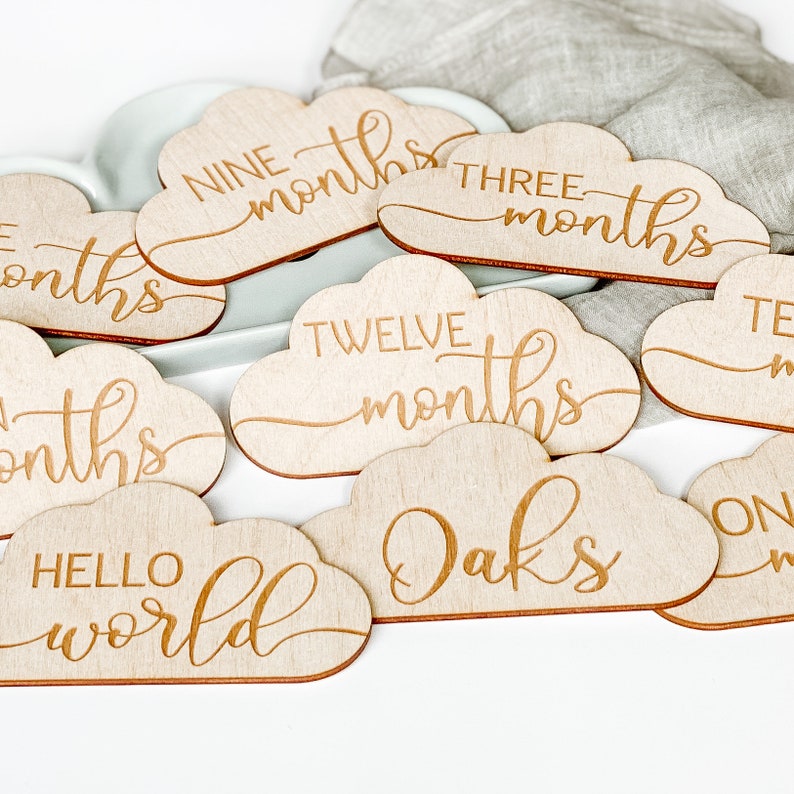 NINE
months
THREE
months
months
TWELVE
months
TE
HELLO
world
Oaks
ON